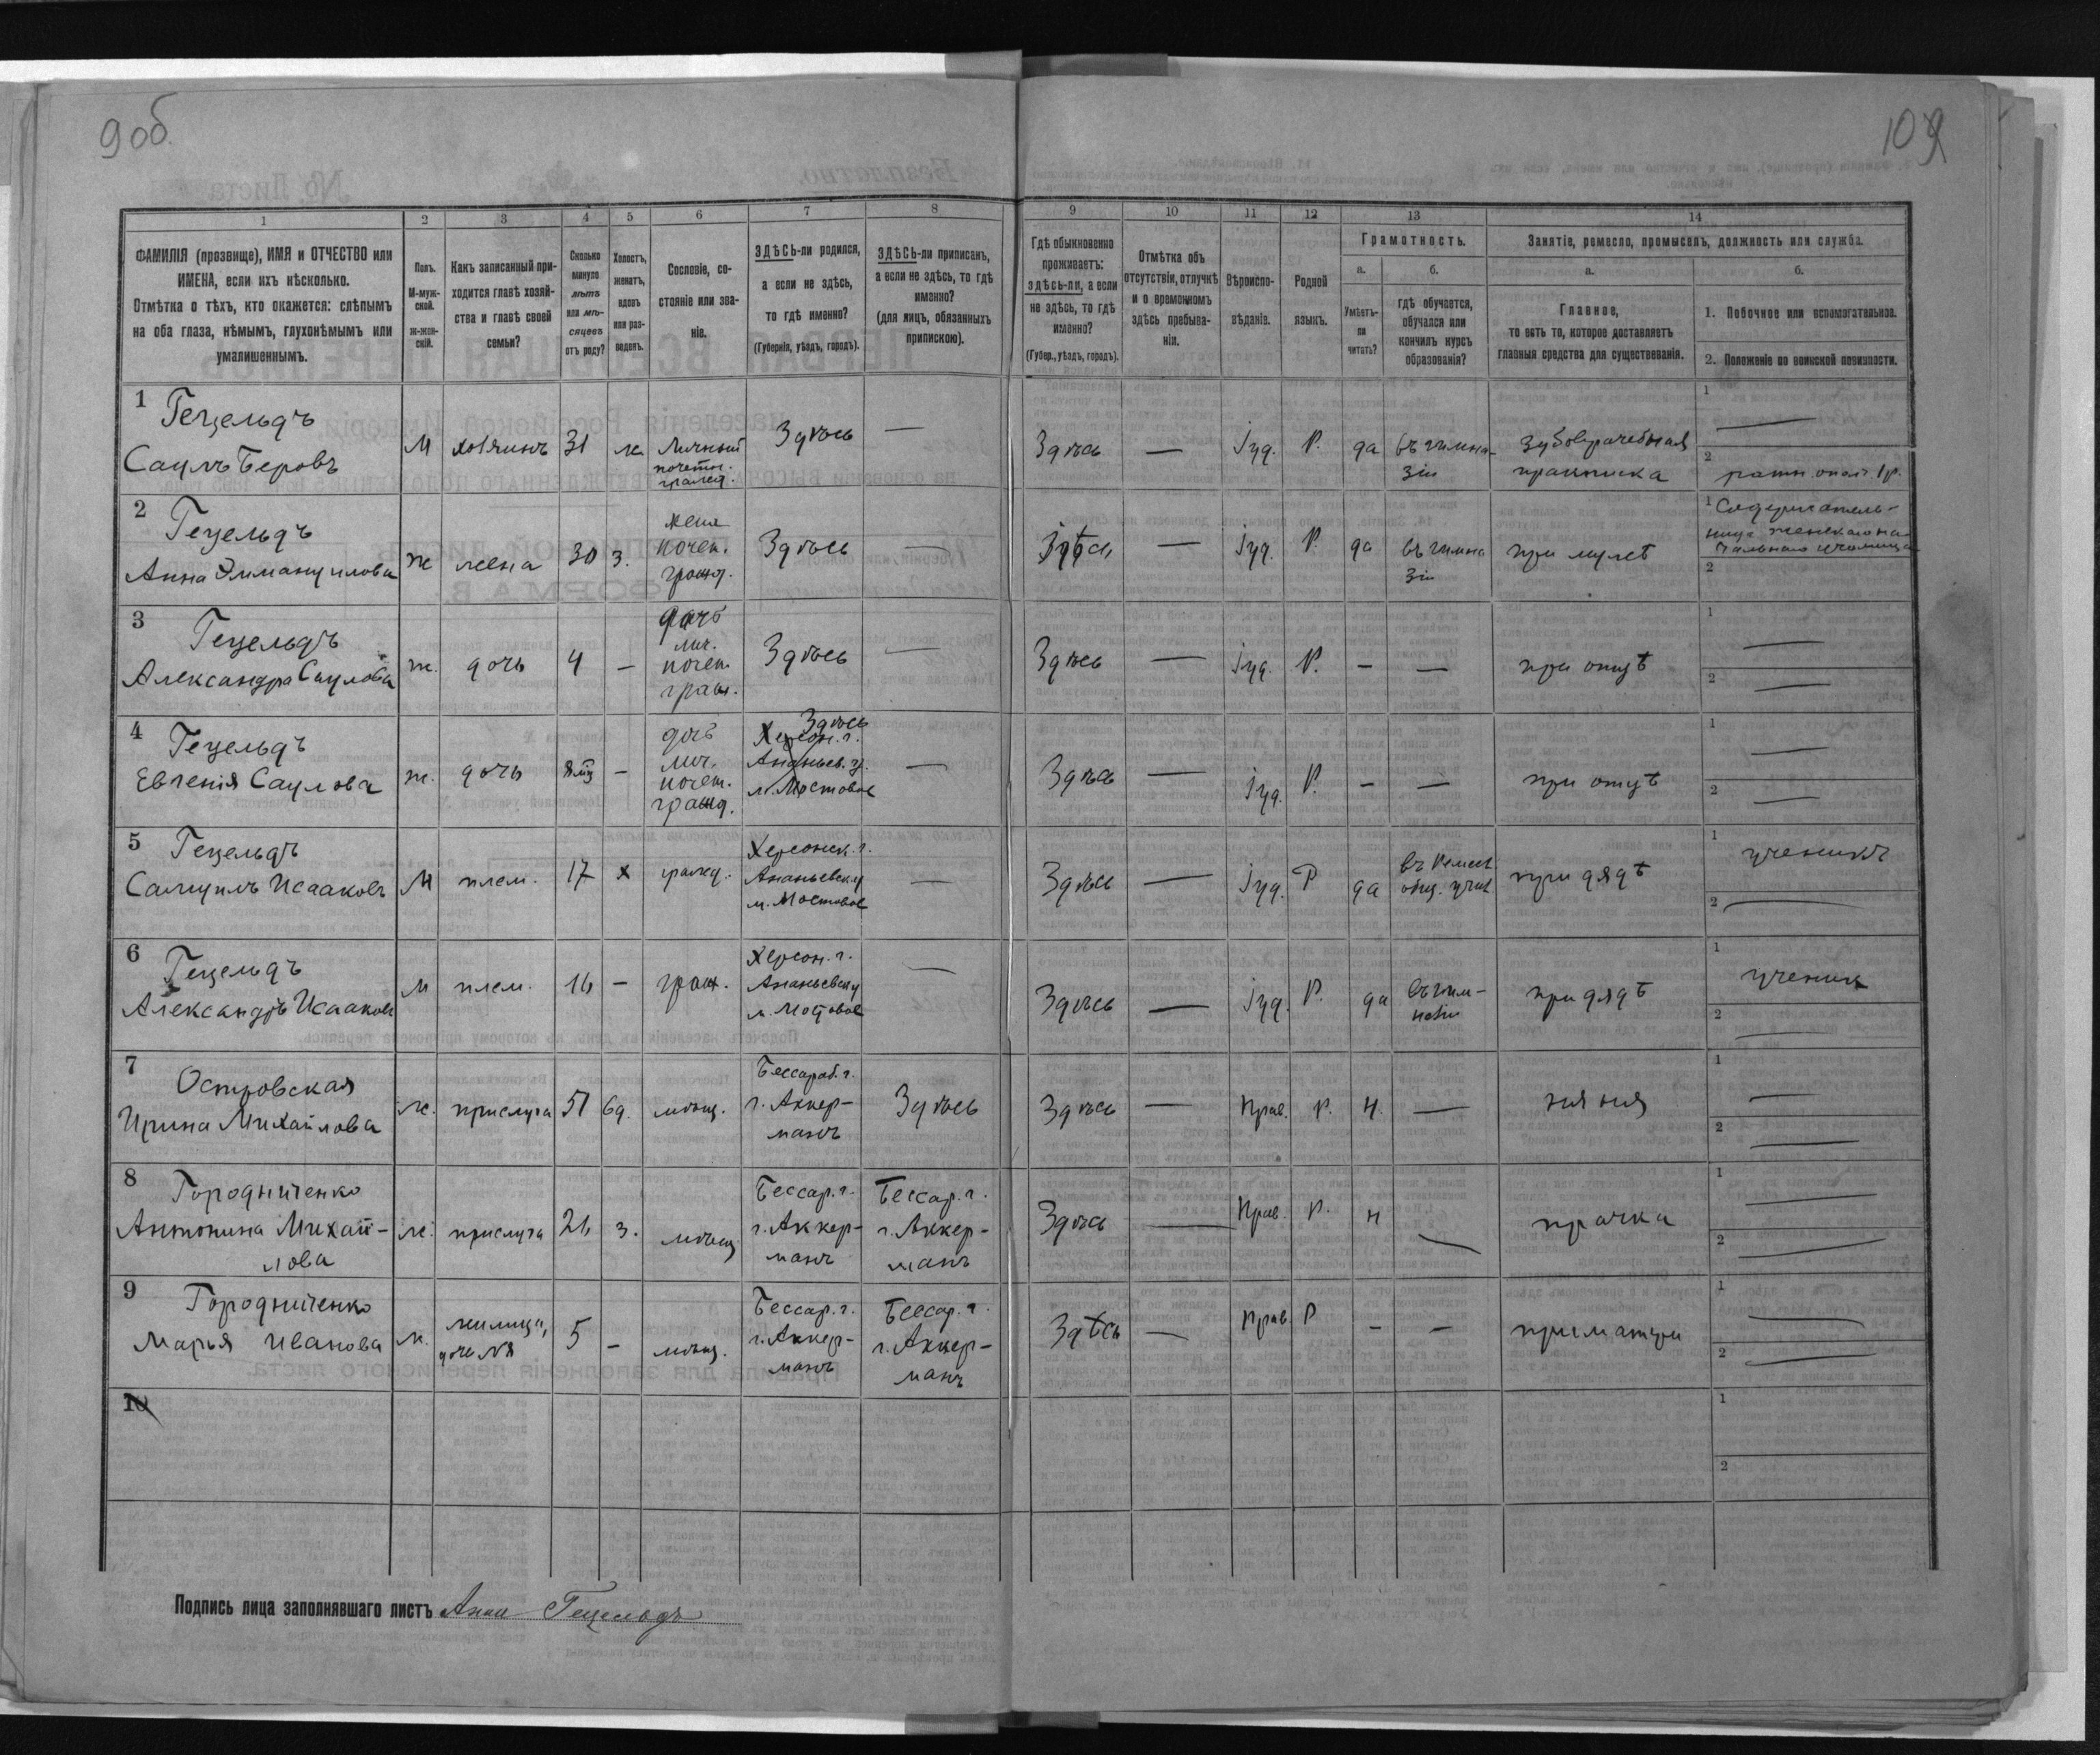 9 об.
109
1
2
3
4
5
6
7
8
9
10
11
12
13
14
ФАМИЛІЯ (прозвище), ИМЯ и ОТЧЕСТВО или
ИМЕНА, если ихъ нѣсколько.
Отмѣтка о тѣхъ, кто окажется: слѣпымъ
на оба глаза, нѣмымъ, глухонѣмымъ или
умалишеннымъ.
Полъ.
М-муж-
ской.
ж-жен-
скій.
Какъ записанный при-
ходится главѣ хозяй-
ства и главѣ своей
семьи?
Сколько
минуло
лѣтъ
или мѣ-
сяцевъ
отъ роду?
Холостъ,
женатъ,
вдовъ
или раз-
веденъ.
Сословіе, со-
стояніе или зва-
ніе.
ЗДѢСЬ-ли родился,
а если не здѣсь,
то гдѣ именно?
(Губернія, уѣздъ, городъ).
ЗДѢСЬ-ли приписанъ,
а если не здѣсь, то гдѣ
именно?
(для лицъ, обязанныхъ
припискою).
Гдѣ обыкновенно
проживаетъ:
здѣсь-ли, а если
не здѣсь, то гдѣ
именно?
(Губер., уѣздъ, городъ).
Отмѣтка объ
отсутствіи, отлучкѣ
и о временномъ
здѣсь пребыва-
ніи.
Вѣроиспо-
вѣданіе.
Родной
языкъ.
Грамотность.
а.
Умѣетъ-
ли
читать?
б.
гдѣ обучается,
обучался или
кончилъ курсъ
образованія?
Занятіе, ремесло, промыселъ, должность или служба.
а.
Главное,
то есть то, которое доставляетъ
главныя средства для существованія.
б.
1. Побочное или вспомогательное.
2. Положеніе по воинской повинности.
1
Гецельдъ
Саулъ Беровъ
М
хозяинъ
31
ж.
Личный
почетн.
гражд.
Здѣсь
—
Здѣсь
—
Іуд.
Р.
да
въ гимна-
зіи
зубоврачебная
практика
1
—
2
ратн. опол. 1 р.
2
Гецельдъ
Анна Эммануилова
ж
жена
30
з.
жена
почет.
гражд.
Здѣсь
—
Здѣсь
—
Іуд.
Р.
да
въ гимна
зіи
при мужѣ
1 Содержатель-
ница женскаго на-
чальнаго училища
2
3
Гецельдъ
Александра Саулова
ж.
дочь
4
—
дочь
лич.
почет.
граж.
Здѣсь
—
Здѣсь
—
Іуд.
Р.
—
—
при отцѣ
1
—
2
—
4
Гецельдъ
Евгенія Саулова
ж.
дочь
8 мц
—
дочь
лич.
почет.
гражд.
Здѣсь
Херсон. г.
Ананьев. у.
м. Мостовое
—
Здѣсь
—
Іуд.
Р.
—
—
при отцѣ
1
—
2
—
5
Гецельдъ
Самуилъ Исааковъ
М
плем.
17
х
гражд.
Херсонск. г.
Ананьевск у
м. Мостовое
—
Здѣсь
—
Іуд.
Р
да
въ ремесл
общ. учил
при дядѣ
1
ученикъ
2
—
6
Гецельдъ
Александръ Исааковъ
М
плем.
16
—
граж.
Херсон. г.
Ананьевск у
м. Мостовое
—
Здѣсь
—
Іуд.
Р.
да
въ гим-
назіи
при дядѣ
1
ученик
2
—
7
Островская
Ирина Михайлова
ж.
прислуга
51
вд.
мѣщ.
Бессараб. г.
г. Аккер-
манъ
Здѣсь
Здѣсь
—
Прав.
Р.
Н.
—
няня
1
—
2
—
8
Городниченко
Антонина Михай-
лова
ж.
прислуга
26
з.
мѣщ
Бессар. г.
г. Аккер-
манъ
Бессар. г.
г. Аккер-
манъ
Здѣсь
—
Прав.
Р.
Н
—
прачка
1
—
2
—
9
Городниченко
Марья Иванова
ж.
жилица,
дочь №8
5
—
мѣщ.
Бессар. г.
г. Аккер-
манъ
Бессар. г.
г. Аккер-
манъ
Здѣсь
—
Прав.
Р
—
—
при матери
1
—
2
—
10
1
2
Подпись лица заполнявшаго листъ Анна Гецельдъ